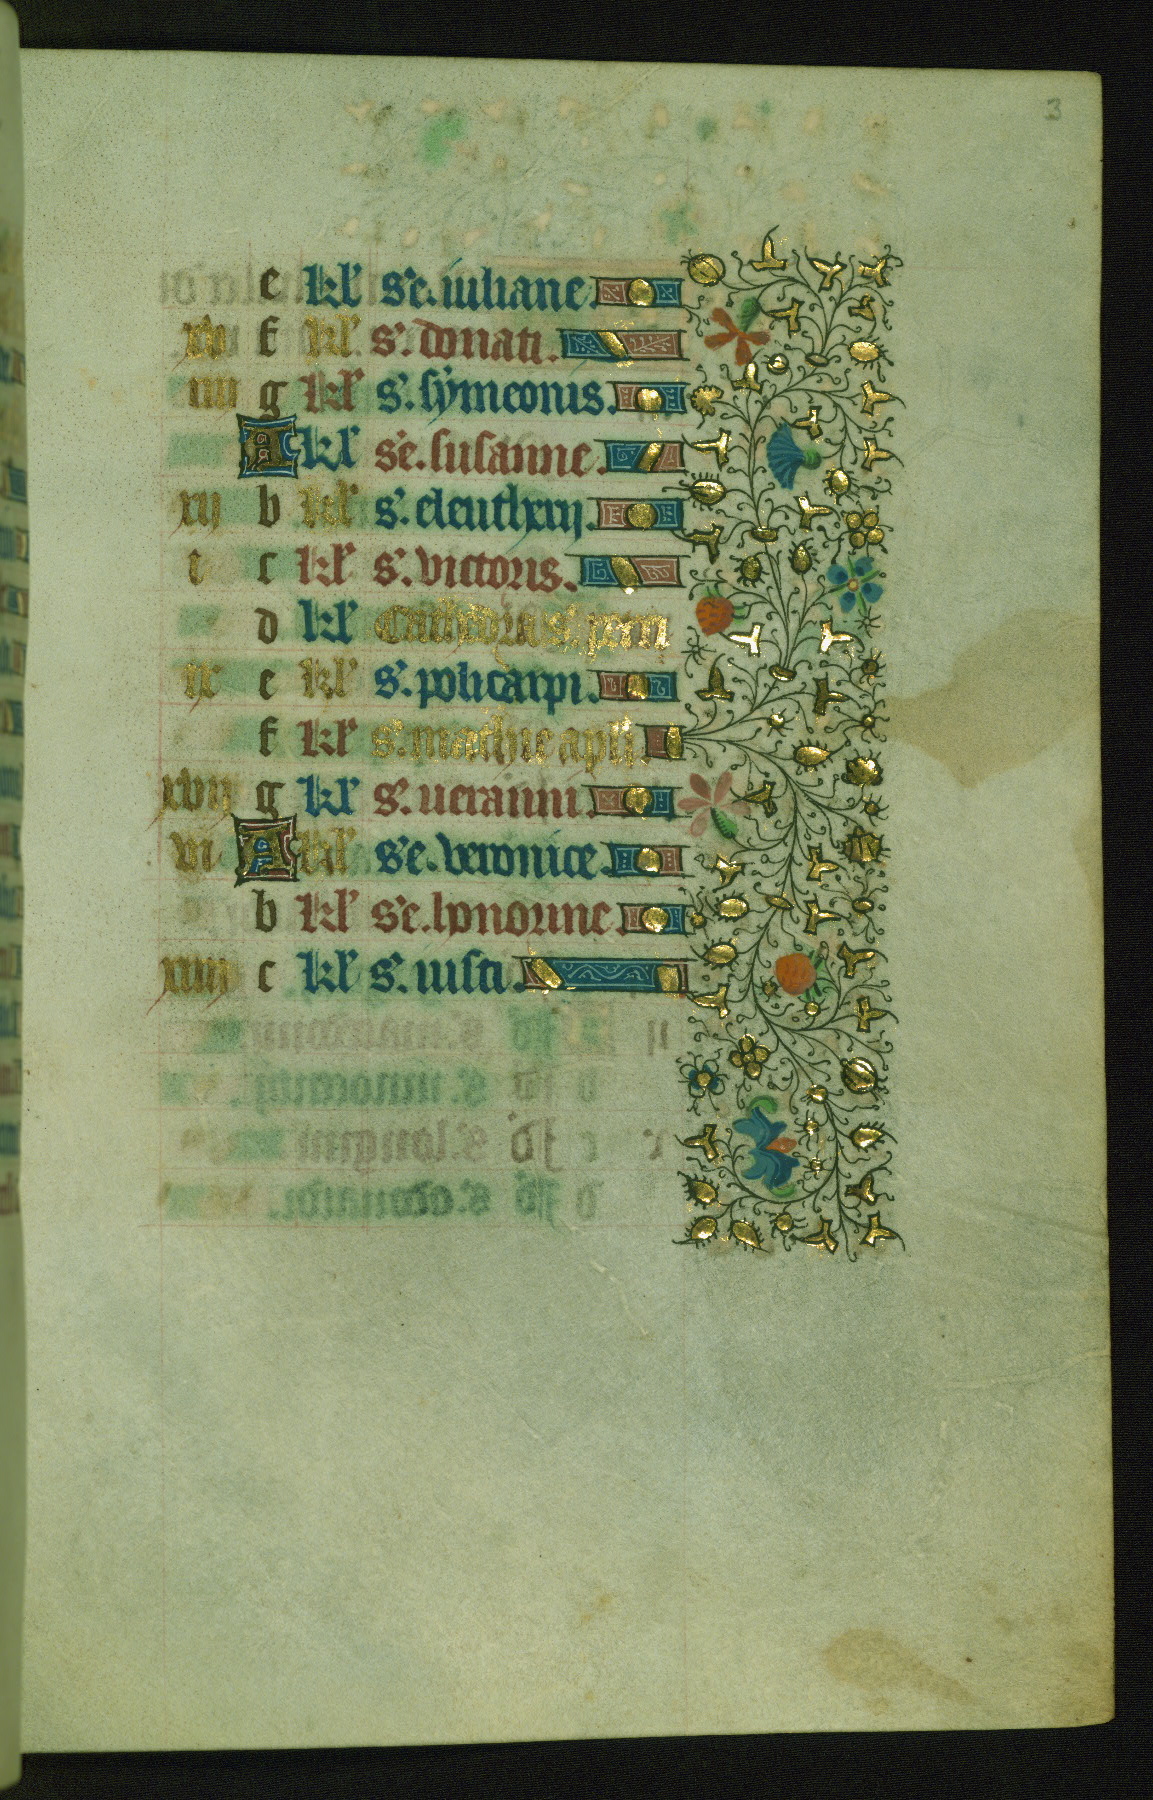 3
e kl' s'e. iuliane.
xvii f kl' s'. donati.
iiii g kl' s'. symeonis.
A kl' s'e. susanne.
xii b kl' s'. eleutherij.
i c kl' s'. victoris.
d kl' Cathedra s'. petri
ix e kl' s'. policarpi.
f kl' s'. mathie apl'i.
xvii g kl' s'.
vi A kl' s'e. veronice.
b kl' s'e. honorine.
xiiii c kl' s'. iusti.